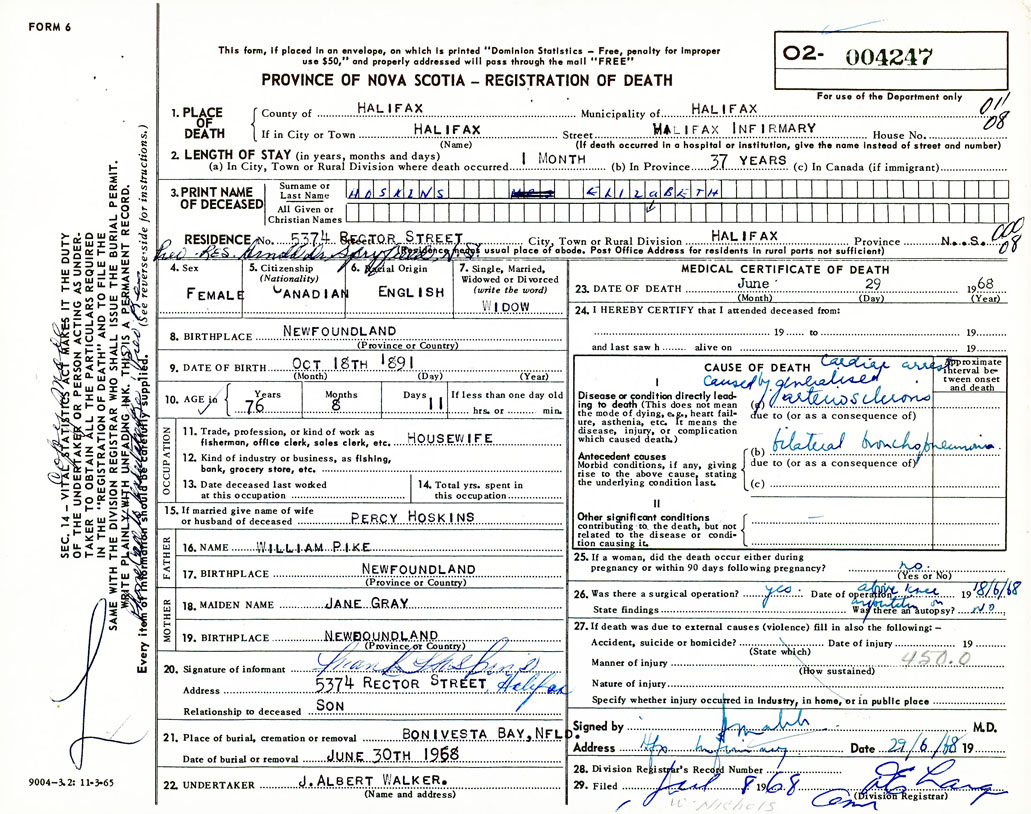 FORM 6
This form, if placed in an envelope, on which is printed "Dominion Statistics – Free, penalty for improper
use $50," and properly addressed will pass through the mail "FREE"
PROVINCE OF NOVA SCOTIA – REGISTRATION OF DEATH
02- 004247
For use of the Department only
011
08
1. PLACE OF DEATH
County of HALIFAX Municipality of HALIFAX
If in City or Town HALIFAX Street HALIFAX INFIRMARY House No.
(Name) (If death occurred in a hospital or institution, give the name instead of street and number)
2. LENGTH OF STAY (in years, months and days)
(a) In City, Town or Rural Division where death occurred 1 MONTH (b) In Province 37 YEARS (c) In Canada (if immigrant)
3. PRINT NAME OF DECEASED
Surname or Last Name HOSKINS ELIZaBETH
All Given or Christian Names
RESIDENCE No. 5374 RECTOR STREET City, Town or Rural Division HALIFAX Province N.S.
(Residence means usual place of abode. Post Office Address for residents in rural parts not sufficient)
00
08
4. Sex
FEMALE
5. Citizenship
(Nationality)
CANADIAN
6. Racial Origin
ENGLISH
7. Single, Married,
Widowed or Divorced
(write the word)
WIDOW
8. BIRTHPLACE NEWFOUNDLAND
(Province or Country)
9. DATE OF BIRTH OCT 18TH 1891
(Month) (Day) (Year)
10. AGE in Years 76 Months 8 Days 11 If less than one day old
hrs. or min.
OCCUPATION
11. Trade, profession, or kind of work as
fisherman, office clerk, sales clerk, etc. HOUSEWIFE
12. Kind of industry or business, as fishing,
bank, grocery store, etc.
13. Date deceased last worked
at this occupation
14. Total yrs. spent in
this occupation
15. If married give name of wife
or husband of deceased PERCY HOSKINS
FATHER
16. NAME WILLIAM PIKE
17. BIRTHPLACE NEWFOUNDLAND
(Province or Country)
MOTHER
18. MAIDEN NAME JANE GRAY
19. BIRTHPLACE NEWFOUNDLAND
(Province or Country)
20. Signature of informant Frank Hoskins
Address 5374 RECTOR STREET, Halifax
Relationship to deceased SON
21. Place of burial, cremation or removal BONIVESTA BAY, NFLD.
Date of burial or removal JUNE 30TH 1968
22. UNDERTAKER J. ALBERT WALKER.
(Name and address)
MEDICAL CERTIFICATE OF DEATH
23. DATE OF DEATH June 29 1968
(Month) (Day) (Year)
24. I HEREBY CERTIFY that I attended deceased from:
19 to 19
and last saw h alive on 19
CAUSE OF DEATH Cardiac arrest
Approximate
interval be-
tween onset
and death
I caused by generalised
Disease or condition directly lead-
ing to death (This does not mean
the mode of dying, e.g., heart fail-
ure, asthenia, etc. It means the
disease, injury, or complication
which caused death.)
(a) arteriosclerosis
due to (or as a consequence of)
Antecedent causes
Morbid conditions, if any, giving
rise to the above cause, stating
the underlying condition last.
(b) bilateral bronchopneumonia
due to (or as a consequence of)
(c)
II
Other significant conditions
contributing to the death, but not
related to the disease or condi-
tion causing it.
25. If a woman, did the death occur either during
pregnancy or within 90 days following pregnancy? no.
(Yes or No)
26. Was there a surgical operation? yes Date of operation 18/6/68
above knee
amputation
State findings Was there an autopsy? NO
27. If death was due to external causes (violence) fill in also the following: –
Accident, suicide or homicide? Date of injury 19
(State which)
Manner of injury 450.0
(How sustained)
Nature of injury
Specify whether injury occurred in Industry, in home, or in public place
Signed by M.D.
Address Hfx Infirmary Date 29/6/68 19
28. Division Registrar's Record Number
29. Filed Jul 8 1968
(Division Registrar)
W. Nichols
SEC. 14 – VITAL STATISTICS ACT MAKES IT THE DUTY
OF THE UNDERTAKER OR PERSON ACTING AS UNDER-
TAKER TO OBTAIN ALL THE PARTICULARS REQUIRED
IN THE "REGISTRATION OF DEATH" AND TO FILE THE
SAME WITH THE DIVISION REGISTRAR WHO SHALL ISSUE THE BURIAL PERMIT.
WRITE PLAINLY WITH UNFADING INK. THIS IS A PERMANENT RECORD.
Every item of information should be carefully supplied. (See reverse side for instructions.)
9004–3.2: 11-3-65